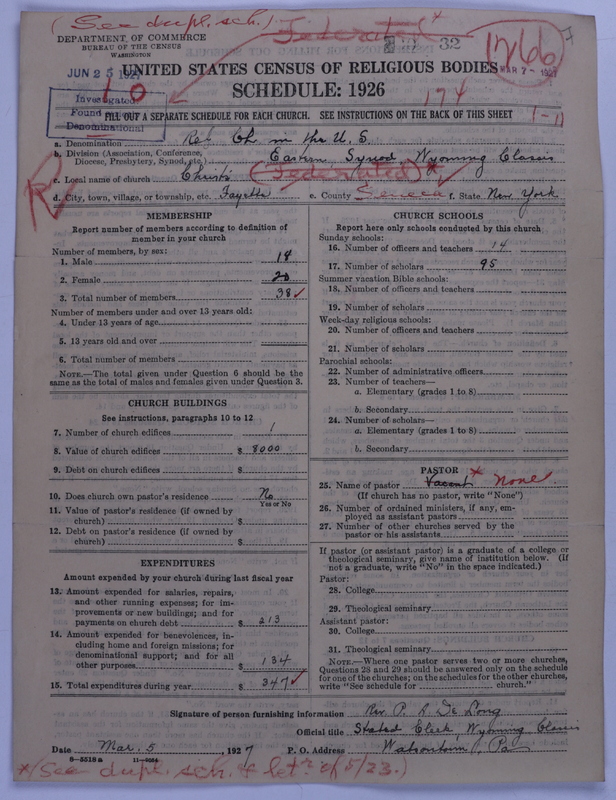 (See dupl. sch.) Federated*
DEPARTMENT OF COMMERCE
BUREAU OF THE CENSUS
WASHINGTON
32
1766
JUN 25 1927
MAR 7 - 1927
UNITED STATES CENSUS OF RELIGIOUS BODIES
SCHEDULE: 1926
10
174
1-11
Investigated
Found
Denominational
FILL OUT A SEPARATE SCHEDULE FOR EACH CHURCH. SEE INSTRUCTIONS ON THE BACK OF THIS SHEET
a. Denomination Ref. Ch. in the U.S.
b. Division (Association, Conference, Diocese, Presbytery, Synod, etc.) Eastern Synod, Wyoming Classis
c. Local name of church Christ's (Federated)*
d. City, town, village, or township, etc. Fayette e. County Seneca f. State New York
MEMBERSHIP
Report number of members according to definition of
member in your church
Number of members, by sex:
1. Male 18
2. Female 20
3. Total number of members 38
Number of members under and over 13 years old:
4. Under 13 years of age
5. 13 years old and over
6. Total number of members
NOTE.—The total given under Question 6 should be the
same as the total of males and females given under Question 3.
CHURCH BUILDINGS
See instructions, paragraphs 10 to 12
7. Number of church edifices 1
8. Value of church edifices $ 8000
9. Debt on church edifices $
10. Does church own pastor's residence No
Yes or No
11. Value of pastor's residence (if owned by
church) $
12. Debt on pastor's residence (if owned by
church) $
EXPENDITURES
Amount expended by your church during last fiscal year
13. Amount expended for salaries, repairs,
and other running expenses; for im-
provements or new buildings; and for
payments on church debt $ 213
14. Amount expended for benevolences, in-
cluding home and foreign missions; for
denominational support; and for all
other purposes $ 134
15. Total expenditures during year $ 347
CHURCH SCHOOLS
Report here only schools conducted by this church
Sunday schools:
16. Number of officers and teachers 14
17. Number of scholars 95
Summer vacation Bible schools:
18. Number of officers and teachers
19. Number of scholars
Week-day religious schools:
20. Number of officers and teachers
21. Number of scholars
Parochial schools:
22. Number of administrative officers
23. Number of teachers—
a. Elementary (grades 1 to 8)
b. Secondary
24. Number of scholars—
a. Elementary (grades 1 to 8)
b. Secondary
PASTOR
25. Name of pastor Vacant * None
(If church has no pastor, write "None")
26. Number of ordained ministers, if any, em-
ployed as assistant pastors
27. Number of other churches served by the
pastor or his assistants
If pastor (or assistant pastor) is a graduate of a college or
theological seminary, give name of institution below. (If
not a graduate, write "No" in the space indicated.)
Pastor:
28. College
29. Theological seminary
Assistant pastor:
30. College
31. Theological seminary
NOTE.—Where one pastor serves two or more churches,
Questions 28 and 29 should be answered only on the schedule
for one of the churches; on the schedules for the other churches,
write "See schedule for church."
Signature of person furnishing information Rev. P. R. De Long
Official title Stated Clerk, Wyoming Classis
Date Mar. 5, 1927 P. O. Address Watsontown, Pa.
8-5518a
*(See dupl. sch. & let. of 5/23.)